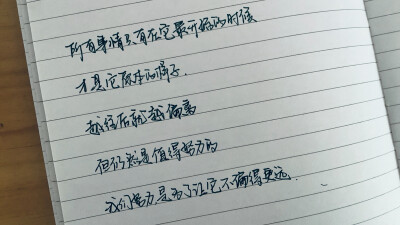 所有事情只有在它最开始的时候
才是它原本的样子.
越往后就越偏离
但仍然是值得努力的
我们努力是为了让它不偏得更远.